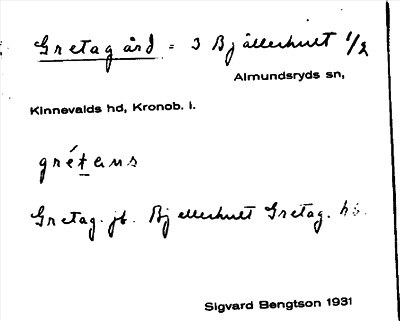 Gretagård = 3 Bjällerhult 1/2
Almundsryds sn,
Kinnevalds hd, Kronob. l.
grétans
Gretag. jb. Bjellerhult Gretag. hs.
Sigvard Bengtson 1931